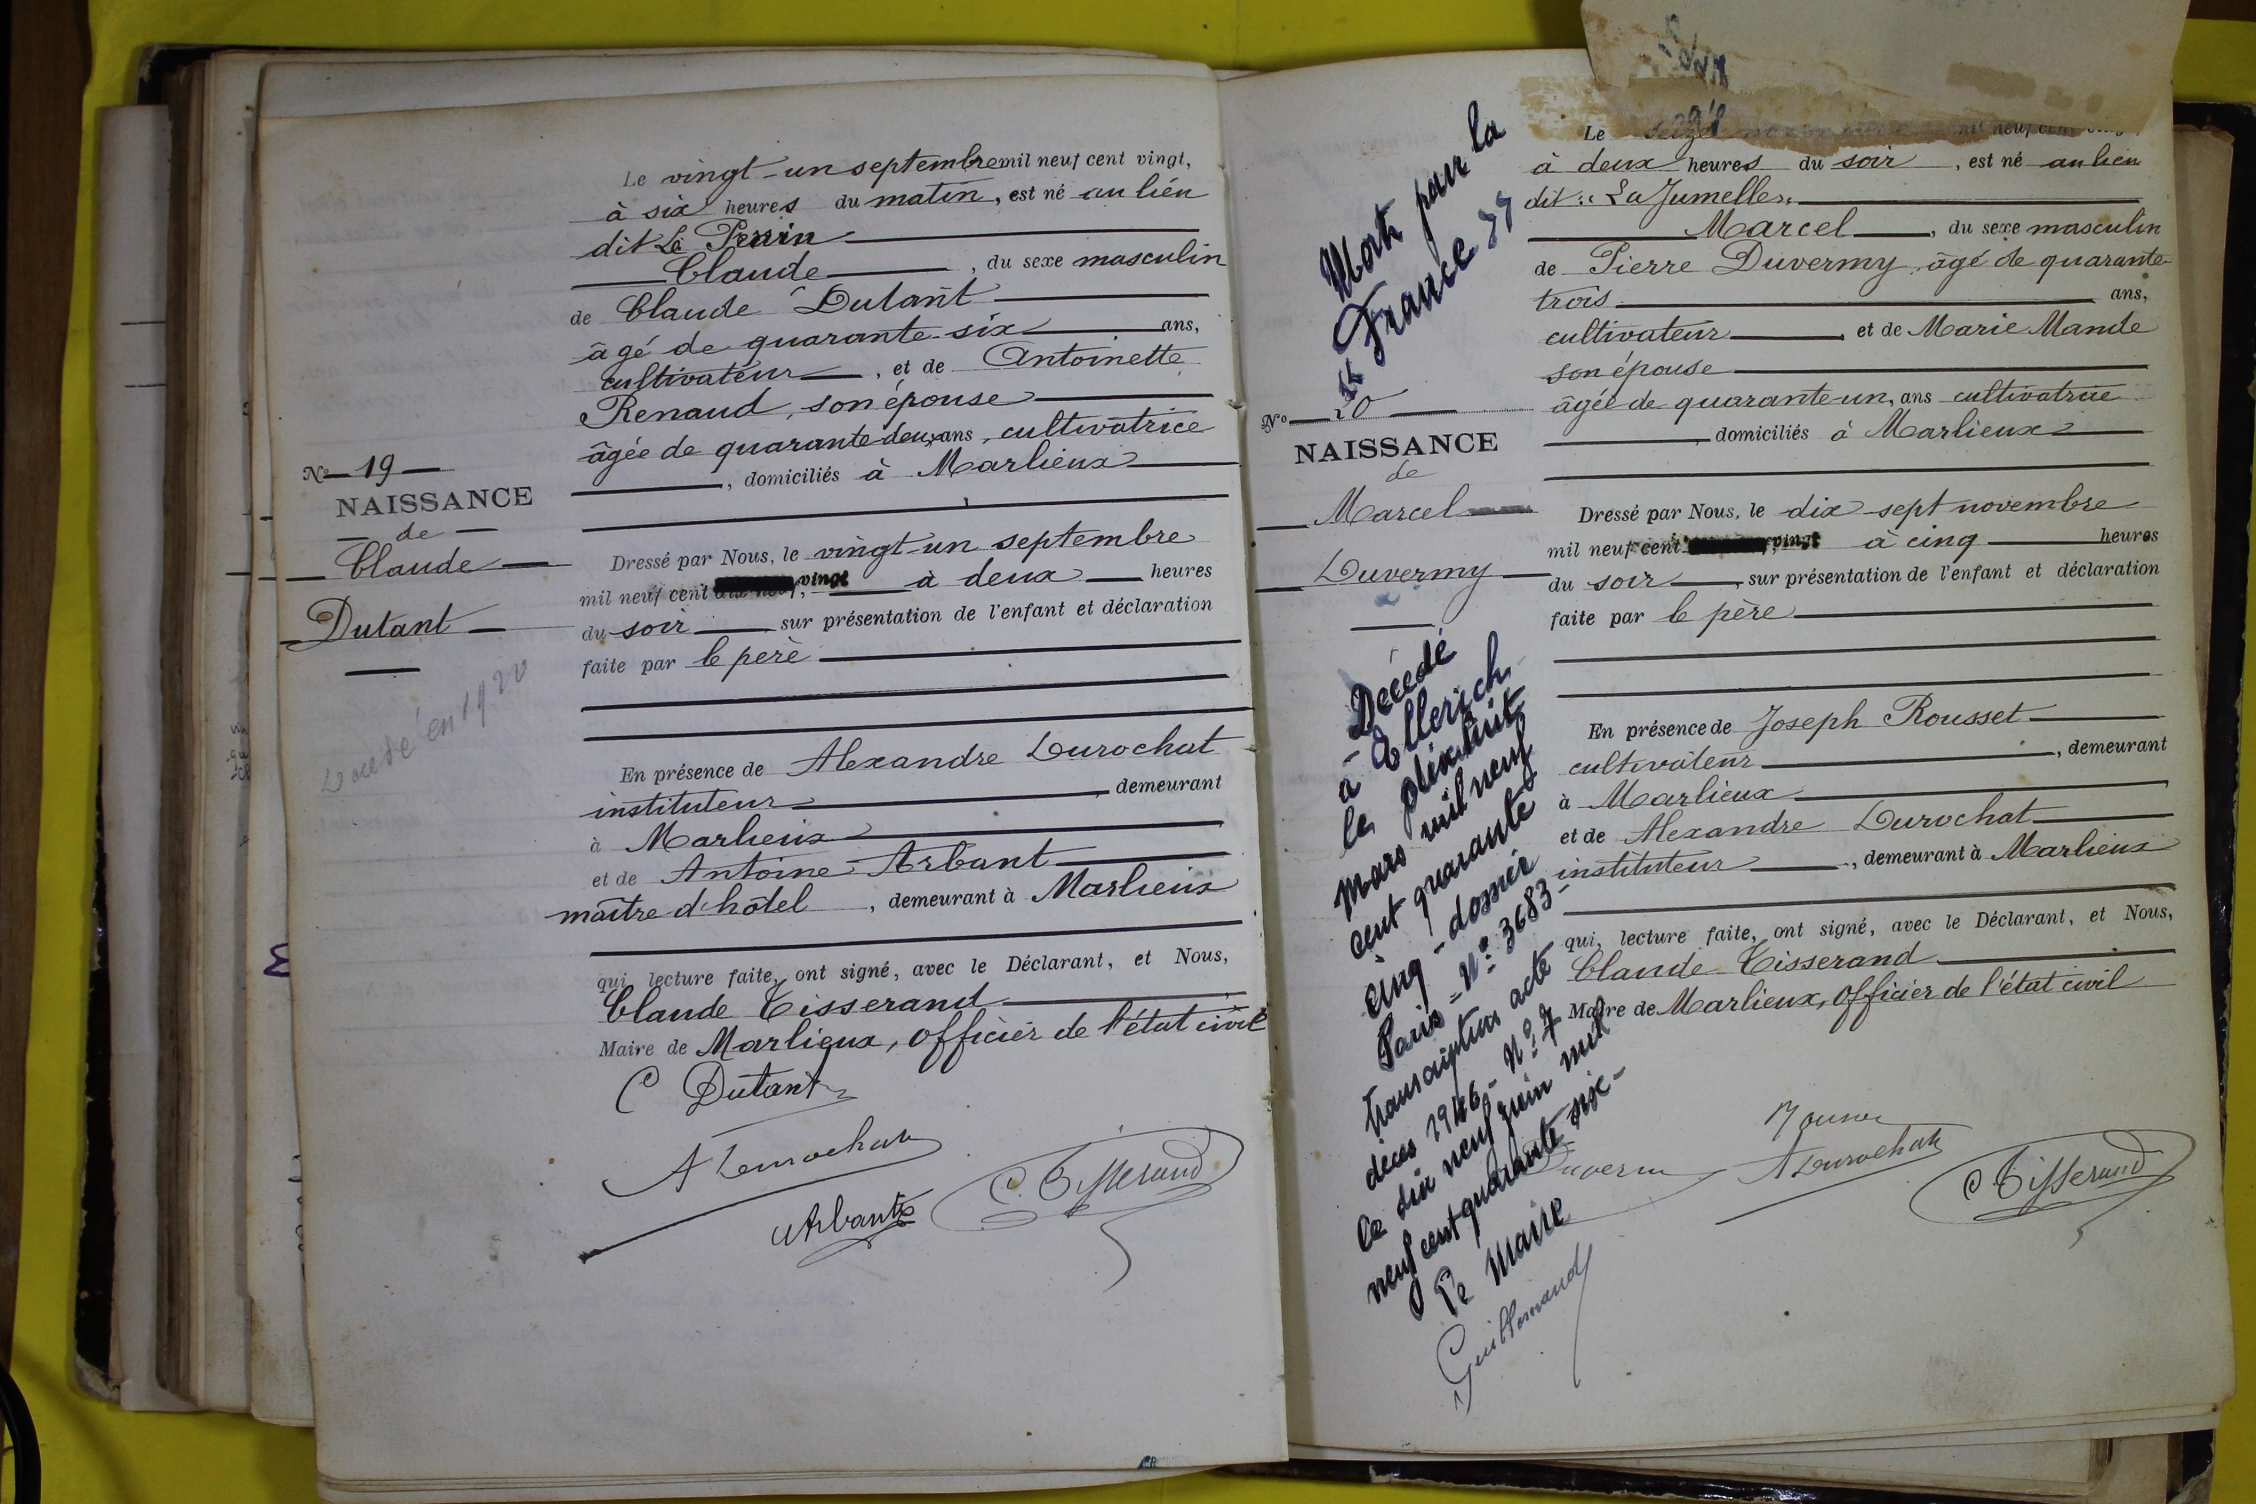 Le vingt-un septembre mil neuf cent vingt,
à six heures du matin, est né au lieu
dit Le Perrin
Claude, du sexe masculin
de Claude Dutant
âgé de quarante-six ans,
cultivateur, et de Antoinette
Renaud, son épouse
âgée de quarante-deux ans, cultivatrice
, domiciliés à Marlieux
N° 19
NAISSANCE
de
Claude
Dutant
Décédé en 1920
Dressé par Nous, le vingt-un septembre
mil neuf cent vingt, à deux heures
du soir sur présentation de l'enfant et déclaration
faite par le père
En présence de Alexandre Durochat
instituteur demeurant
à Marlieux
et de Antoine Arbant
maître d'hôtel, demeurant à Marlieux
qui, lecture faite, ont signé, avec le Déclarant, et Nous,
Claude Tisserand
Maire de Marlieux, officier de l'état civil
C Dutant
A Durochat
Arbant
C. Tisserand
Mort pour la
France
N° 20
NAISSANCE
de
Marcel
Duvermy
Décédé
à Ellerich
le dix huit
mars mil neuf
cent quarante
cinq - dossier
Paris - N° 3683 -
Transcription acte
décès 1946 - N° 7
Ce dix neuf juin mil
neuf cent quarante six -
Le Maire
Guillemaud
Le seize mil neuf cent
à deux heures du soir, est né au lieu
dit "La Jumelle"
Marcel, du sexe masculin
de Pierre Duvermy, âgé de quarante-
trois ans,
cultivateur, et de Marie Mande
son épouse
âgée de quarante-un, ans cultivatrice
, domiciliés à Marlieux
Dressé par Nous, le dix sept novembre
mil neuf cent vingt à cinq heures
du soir, sur présentation de l'enfant et déclaration
faite par le père
En présence de Joseph Rousset
cultivateur, demeurant
à Marlieux
et de Alexandre Durochat
instituteur, demeurant à Marlieux
qui, lecture faite, ont signé, avec le Déclarant, et Nous,
Claude Tisserand
Maire de Marlieux, officier de l'état civil
A Durochat
C Tisserand